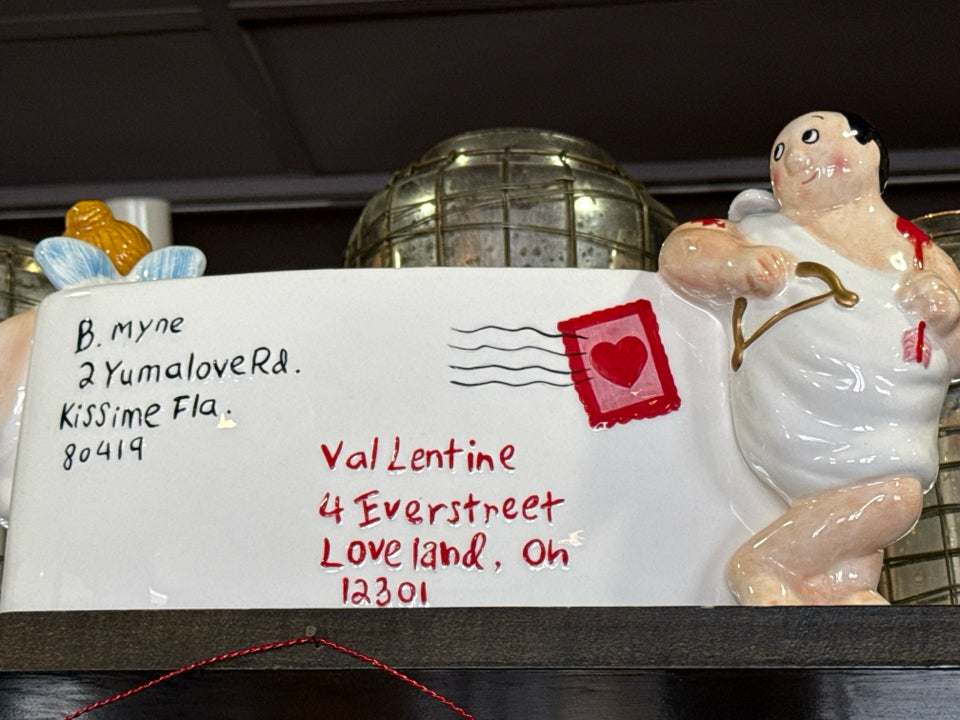 B. Myne
2 Yumalove Rd.
Kissime Fla.
80419
Val Lentine
4 Everstreet
Loveland, Oh
12301